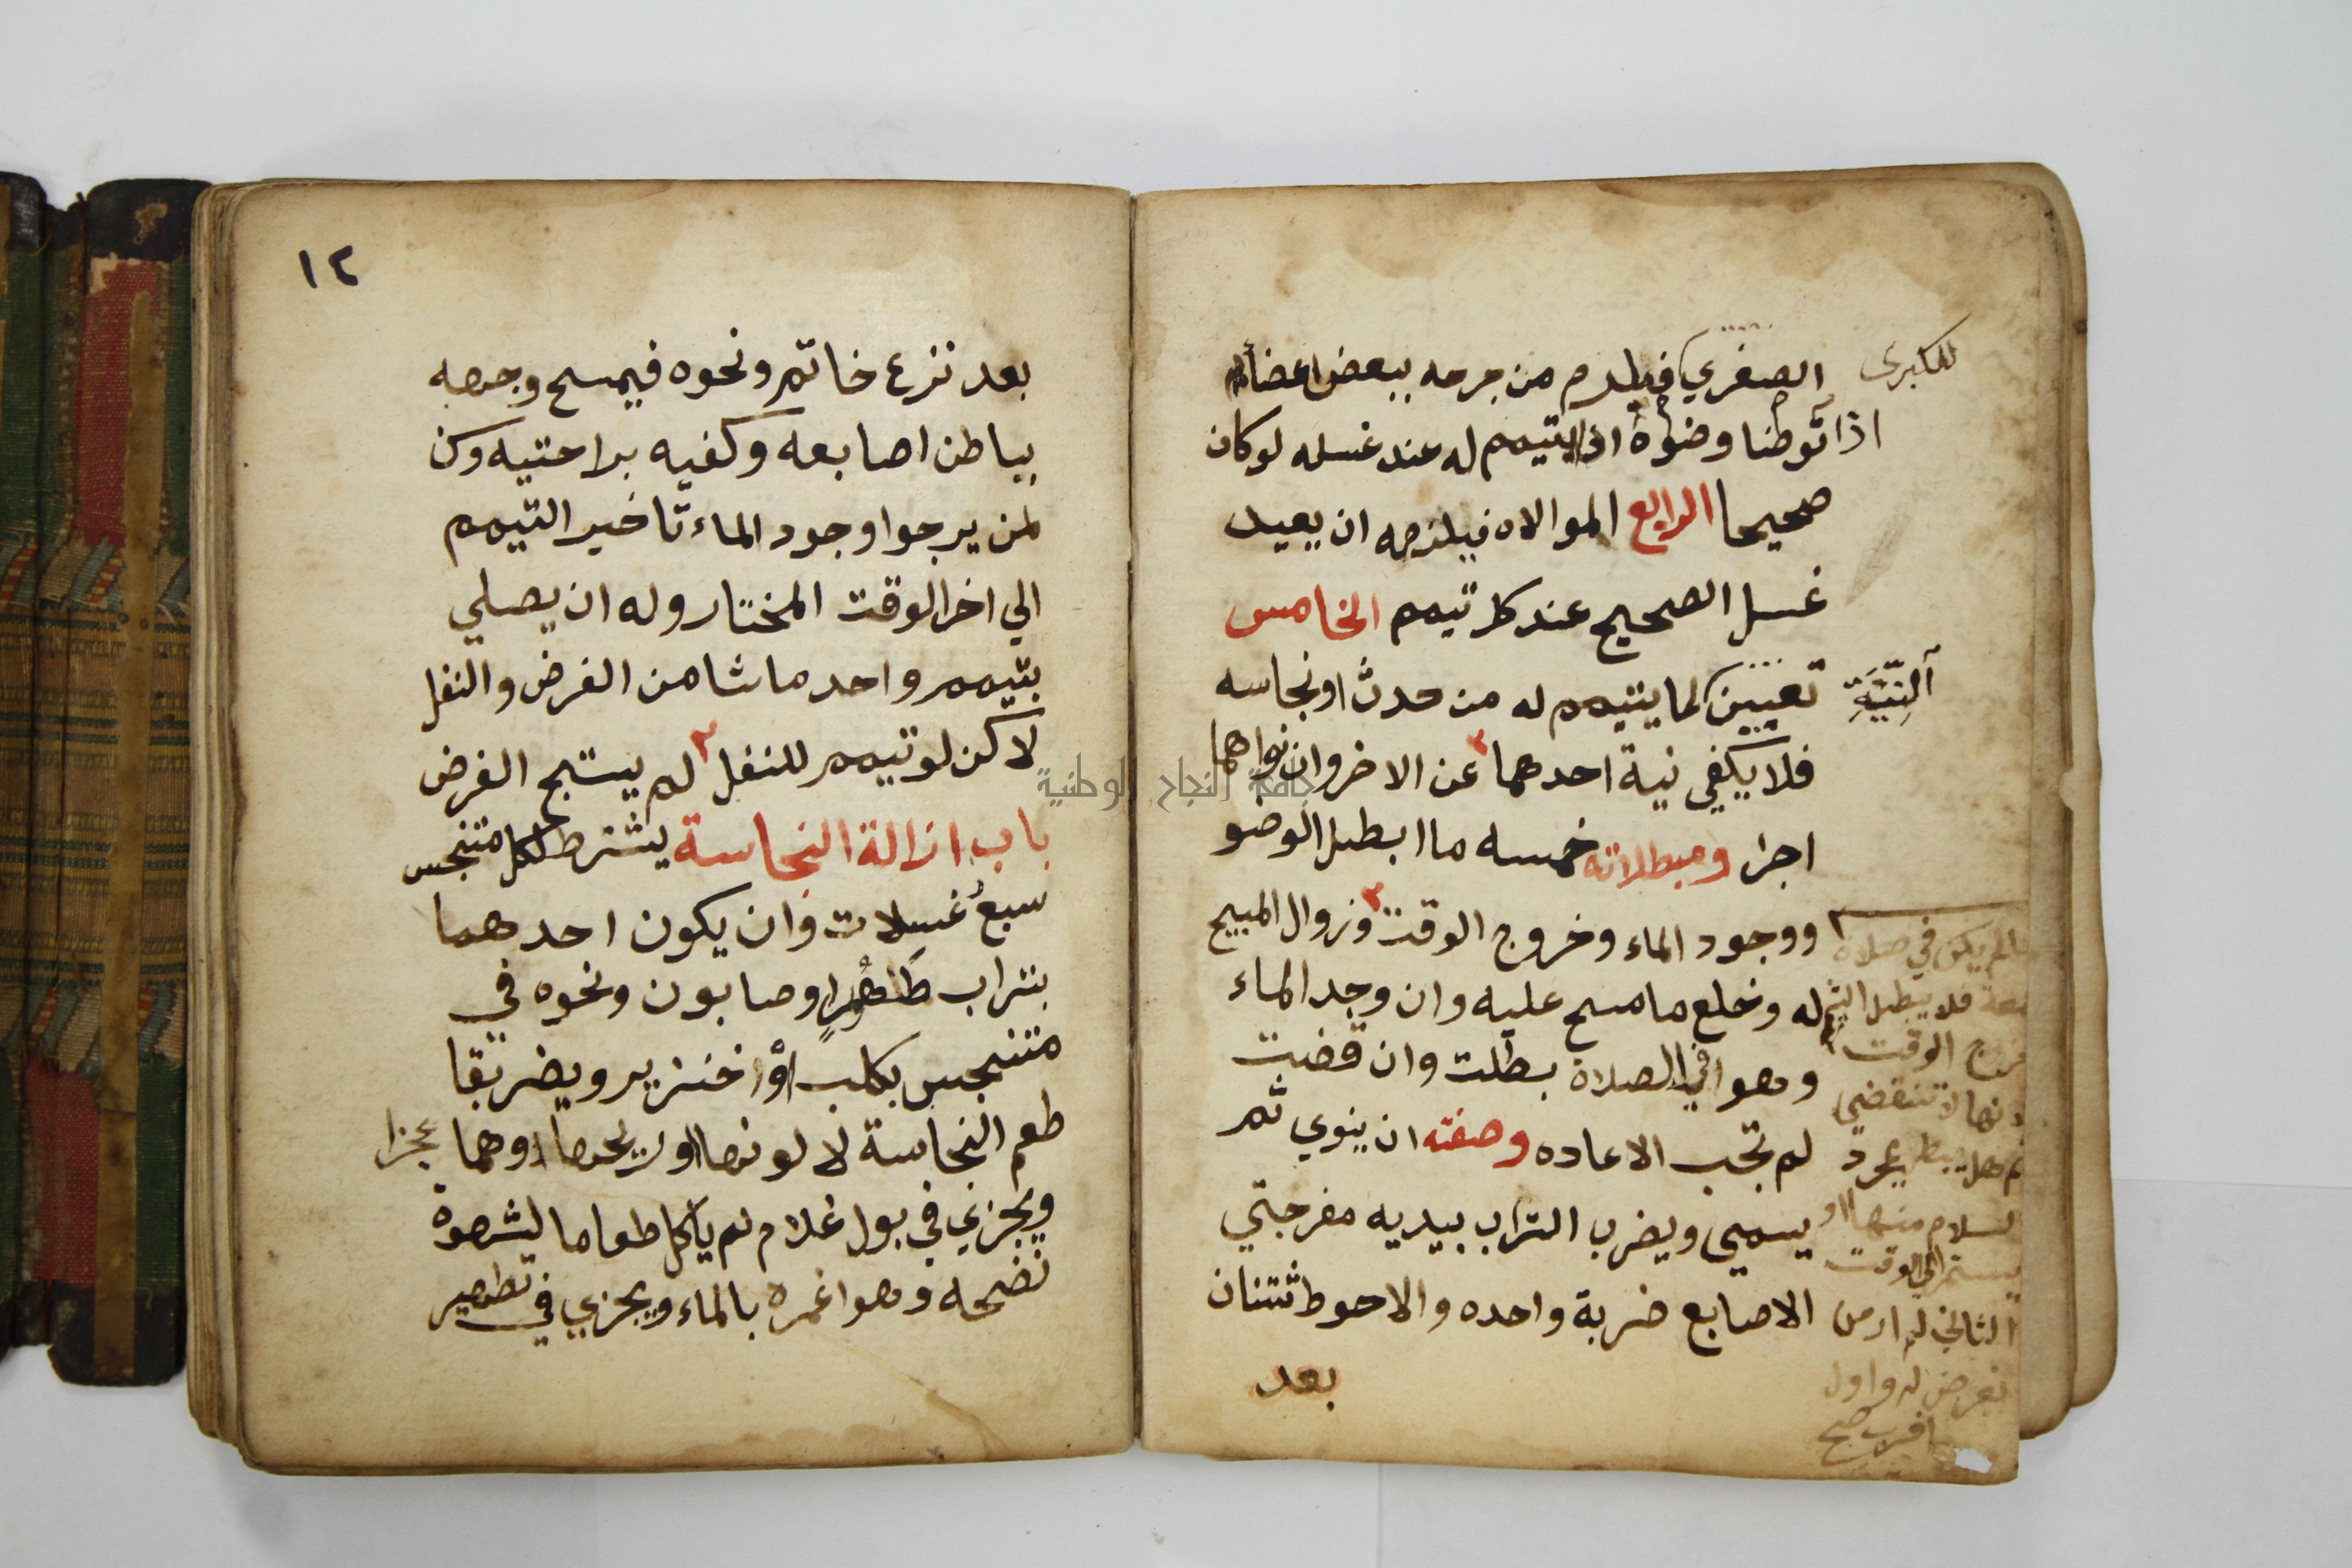 الصغري فيلزم من جرحه ببعض اعضائه
للكبرى
اذا توضا وضوءه ان يتيمم له عند غسله لو كان
صحيحا الرابع الموالاه فيلزمه ان يعيد
غسل الصحيح عند كل تيمم الخامس
تعيين النية لما يتيمم له من حدث او نجاسه
فلا يكفي نية احدهما عن الاخر وان نواهما
اجزا ومبطلاته خمسه ما ابطل الوضو
ووجود الماء وخروج الوقت وزوال المبيح
له وخلع ما مسح عليه وان وجد الماء
وهو في الصلاة بطلت وان قضيت
لم تجب الاعاده وصفته ان ينوي ثم
يسمي ويضرب التراب بيديه مفرجتي
الاصابع ضربة واحده والاحوط ثنتان
بعد
مالم يكن في صلاة
فلا يبطل التيمم
خروج الوقت
لانها لا تنقضي
١٢
بعد نزع خاتم ونحوه فيمسح وجهه
بباطن اصابعه وكفيه براحتيه وسن
لمن يرجوا وجود الماء تاخير التيمم
الي اخر الوقت المختار وله ان يصلي
بتيمم واحد ما شا من الفرض والنفل
لاكن لو تيمم للنفل لم يستبح الفرض
باب ازالة النجاسة يشترط لكل متنجس
سبع غسلات وان يكون احدهما
بتراب طهور او صابون ونحوه في
متنجس بكلب او خنزير ويضر بقا
طعم النجاسة لا لونها او ريحها او هما عجزا
ويجزي في بول غلام لم ياكل طعاما لشهوة
نضحه وهو غمره بالماء ويجزي في تطهير
جامعة النجاح الوطنية